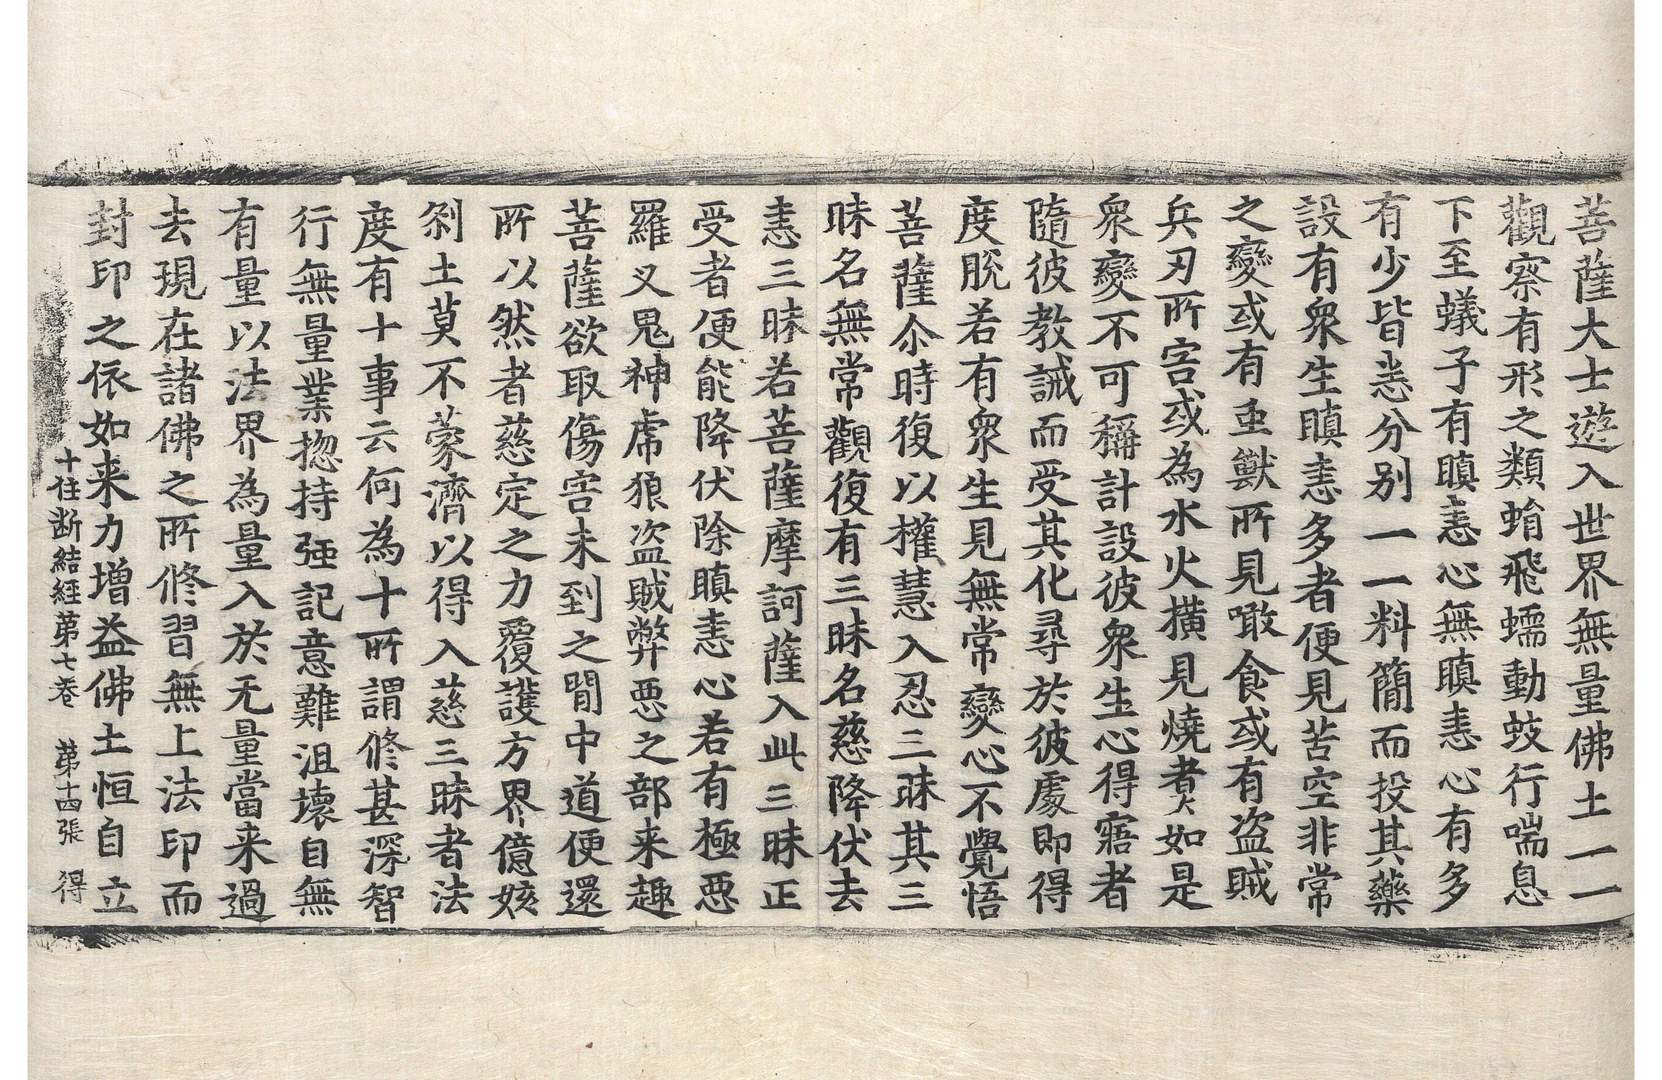 菩薩大士遊入世界無量佛土一一
觀察有形之類蜎飛蠕動蚑行喘息
下至蟻子有瞋恚心無瞋恚心有多
有少皆悉分別一一料簡而投其藥
設有衆生瞋恚多者便見苦空非常
之變或有重獸所見噉食或有盗賊
兵刃所害或為水火橫見燒煑如是
衆變不可稱計設彼衆生心得寤者
隨彼教誡而受其化尋於彼處即得
度脫若有衆生見無常變心不覺悟
菩薩尒時復以權慧入忍三昧其三
昧名無常觀復有三昧名慈降伏去
恚三昧若菩薩摩訶薩入此三昧正
受者便能降伏除瞋恚心若有極惡
羅叉鬼神虎狼盗賊弊惡之部来趣
菩薩欲取傷害未到之間中道便還
所以然者慈定之力覆護方界億姟
剎土莫不蒙濟以得入慈三昧者法
度有十事云何為十所謂修甚深智
行無量業揔持强記意難沮壞自無
有量以法界為量入於无量當来過
去現在諸佛之所修習無上法印而
封印之依如来力增益佛土恒自立
十住断結經苐七卷　苐十四張　得